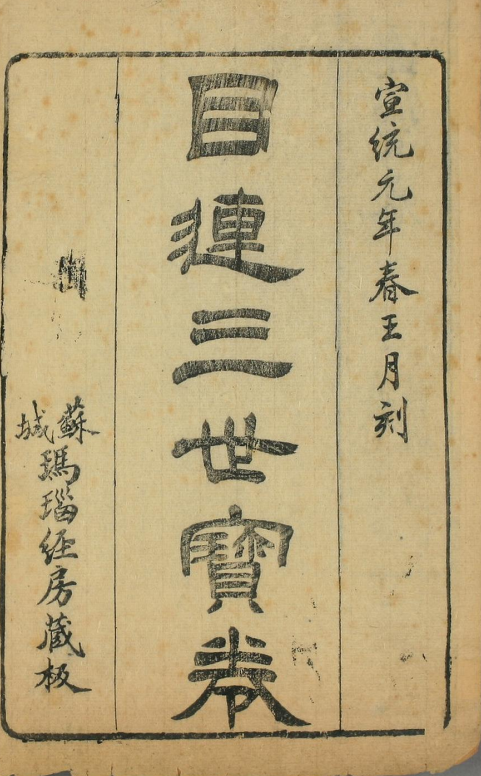 宣統元年春王月刻
目連三世寶卷
蘇城瑪瑙經房藏板